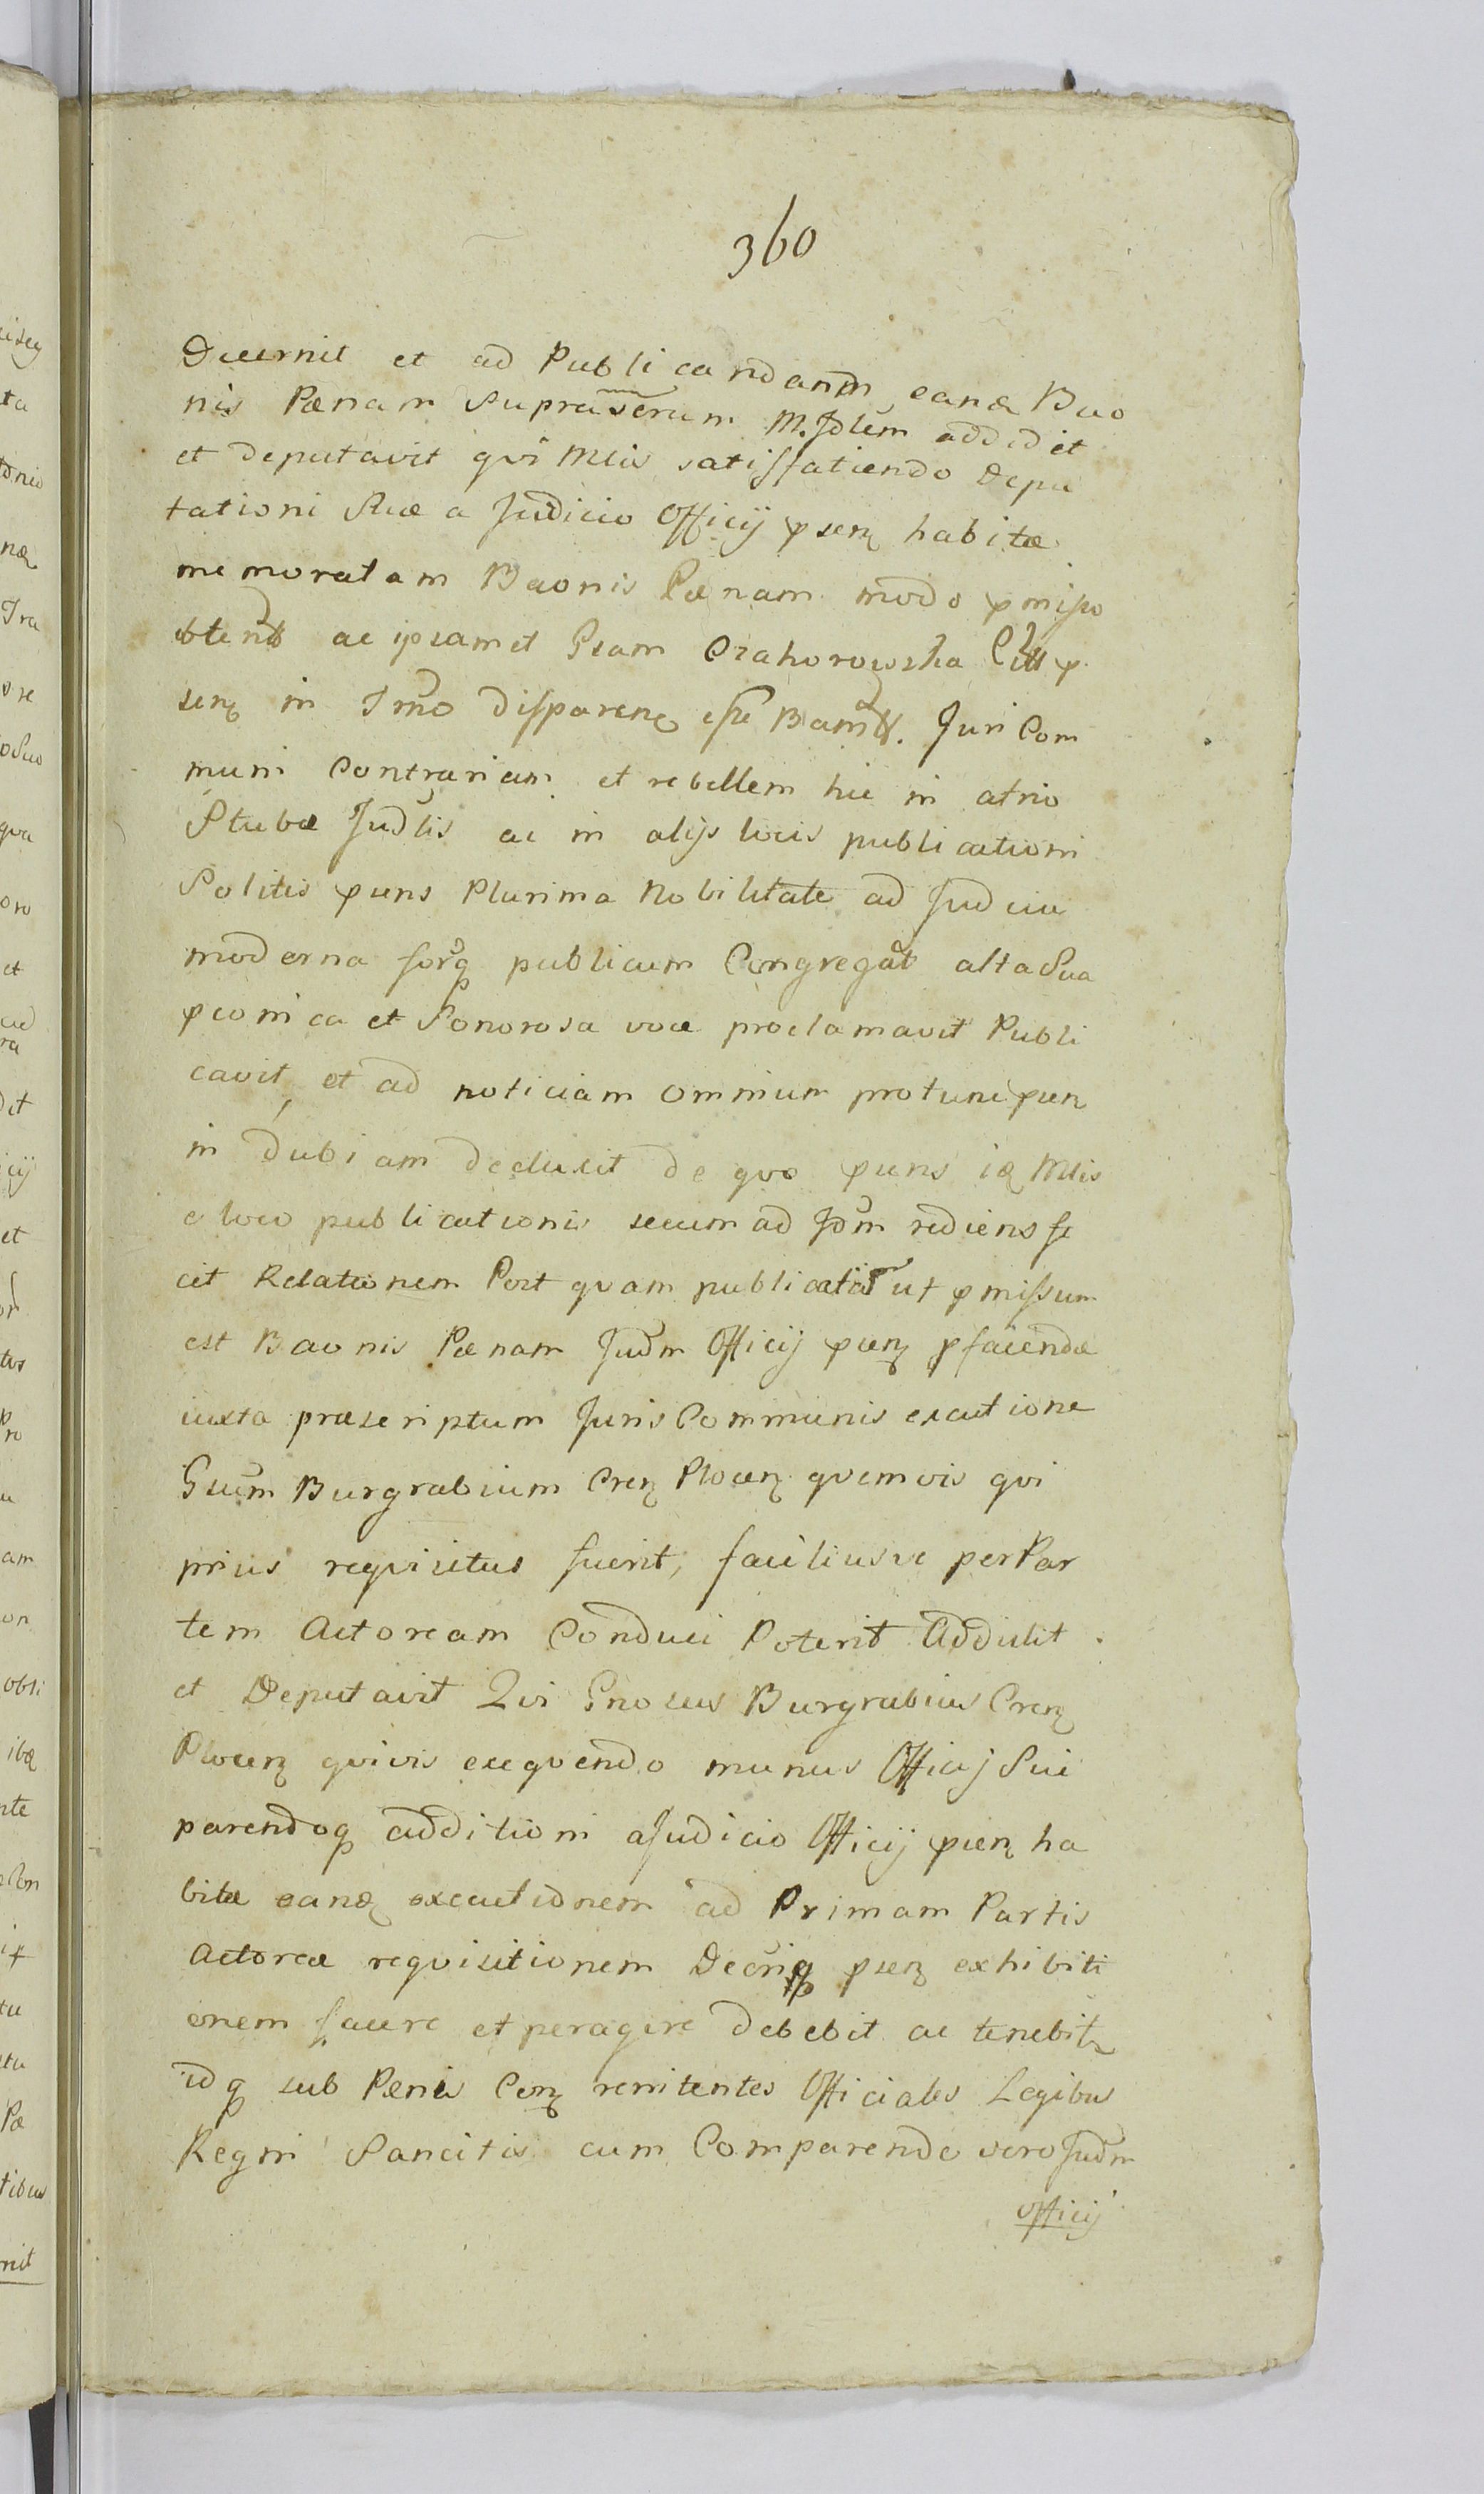 360
Decernit et ad Publicandam eanq Bao
nis Pænam Suprascrum M. Jdlem addidit
et deputavit qvi Mlis satisfatiendo Depu
tationi Suæ a Judicio Officij psenz habitæ
memoratam Baonis Pænam modo pmisso
obtend ac ipsamet Gsam Czahorowska Citt p
senz in Trno disparenz esse Bamd. Juri Com
muni Contrariam et rebellem hic in atrio
Stubæ Judlis ac in alijs locis publicationi
Solitis puns Plurima Nobilitate ad Judicia
moderna forq publicum Congregat alta Sua
pconica et Sonorosa voce proclamavit Publi
cavit, et ad noticiam omnium protunc psen
in dubiam deduxit de qvo puns iq Mlis
e loco publicationis secum ad Jdm rediens fe
cit Relationem Post qvam publicatā ut pmissum
est Baonis Pænam Judm Officij psenz pfaciendæ
iuxta præscriptum Juris Communis executione
Gsum Burgrabium Crenz Plocenz qvemvis qvi
prius reqvisitus fuerit, faciliusve per Par
tem Actoream Conduci Poterit Addidit
et Deputavit Qvi Gnosus Burgrabius Crenz
Plocenz qvivis exeqvendo munus Officij Sui
parendoq additioni a Judicio Officij psenz ha
bitæ eanq executionem ad Primam Partis
Actoreæ reqvisitionem Decriq psenz exhibiti
onem facere et peragere debebit ac tenebit
idq sub Penis Conz renitentes Officiales Legibus
Regni Sancitis cum Comparendo vero Judm
officij